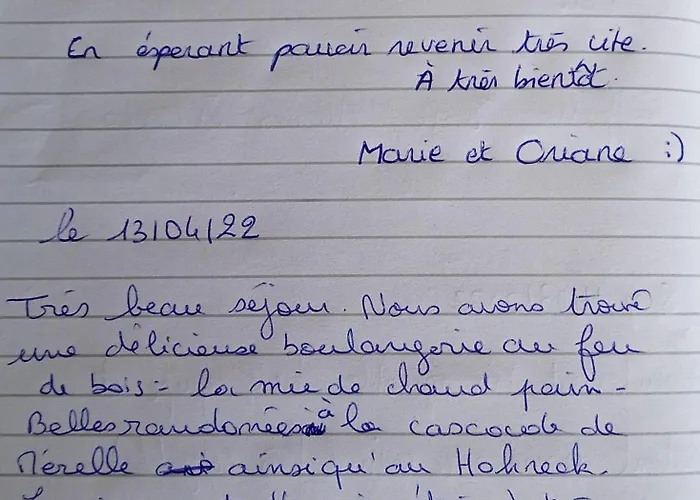 En éspérant pouvoir revenir très vite.
À très bientôt.
Marie et Oriane :)
le 13/04/22
Très beau séjour. Nous avons trouvé
une délicieuse boulangerie au feu
de bois = la mie de chaud pain -
Belles randonnées à la cascade de
Mérelle ainsi qu'au Hohneck.